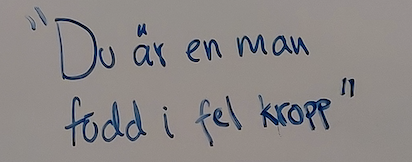 "Du är en man
född i fel kropp"